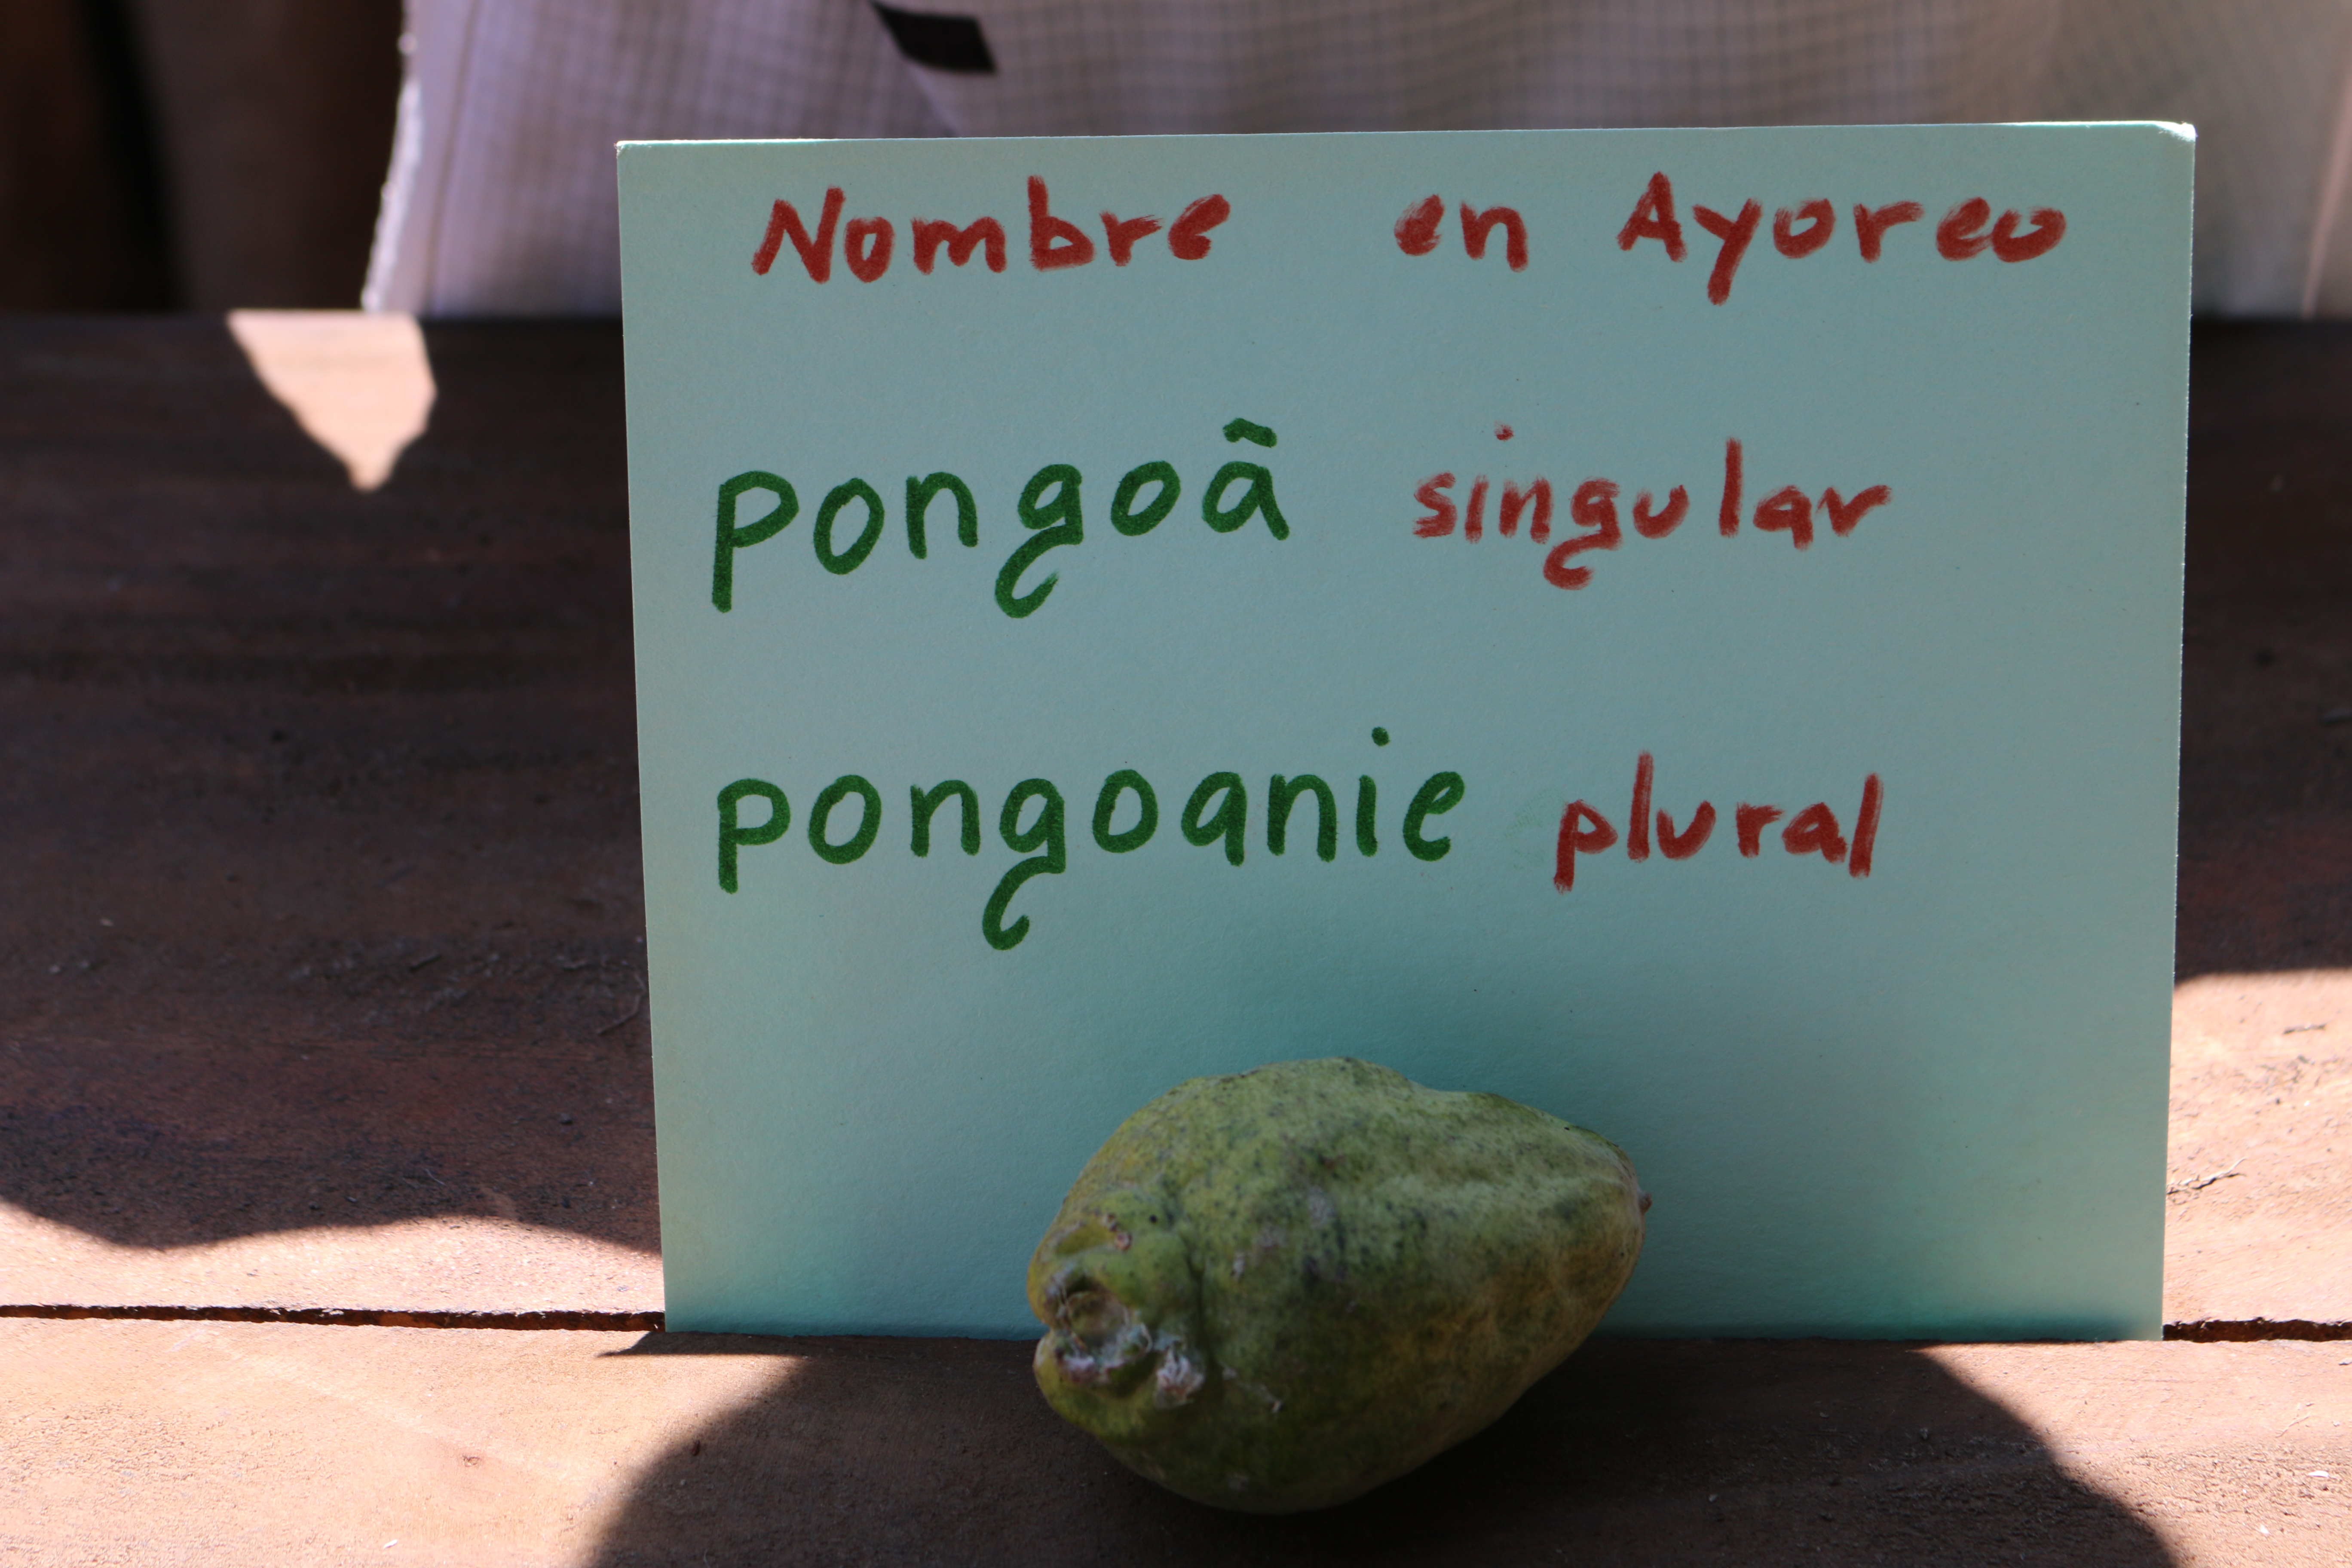 Nombre en Ayoreo
pongoã singular
pongoanie plural